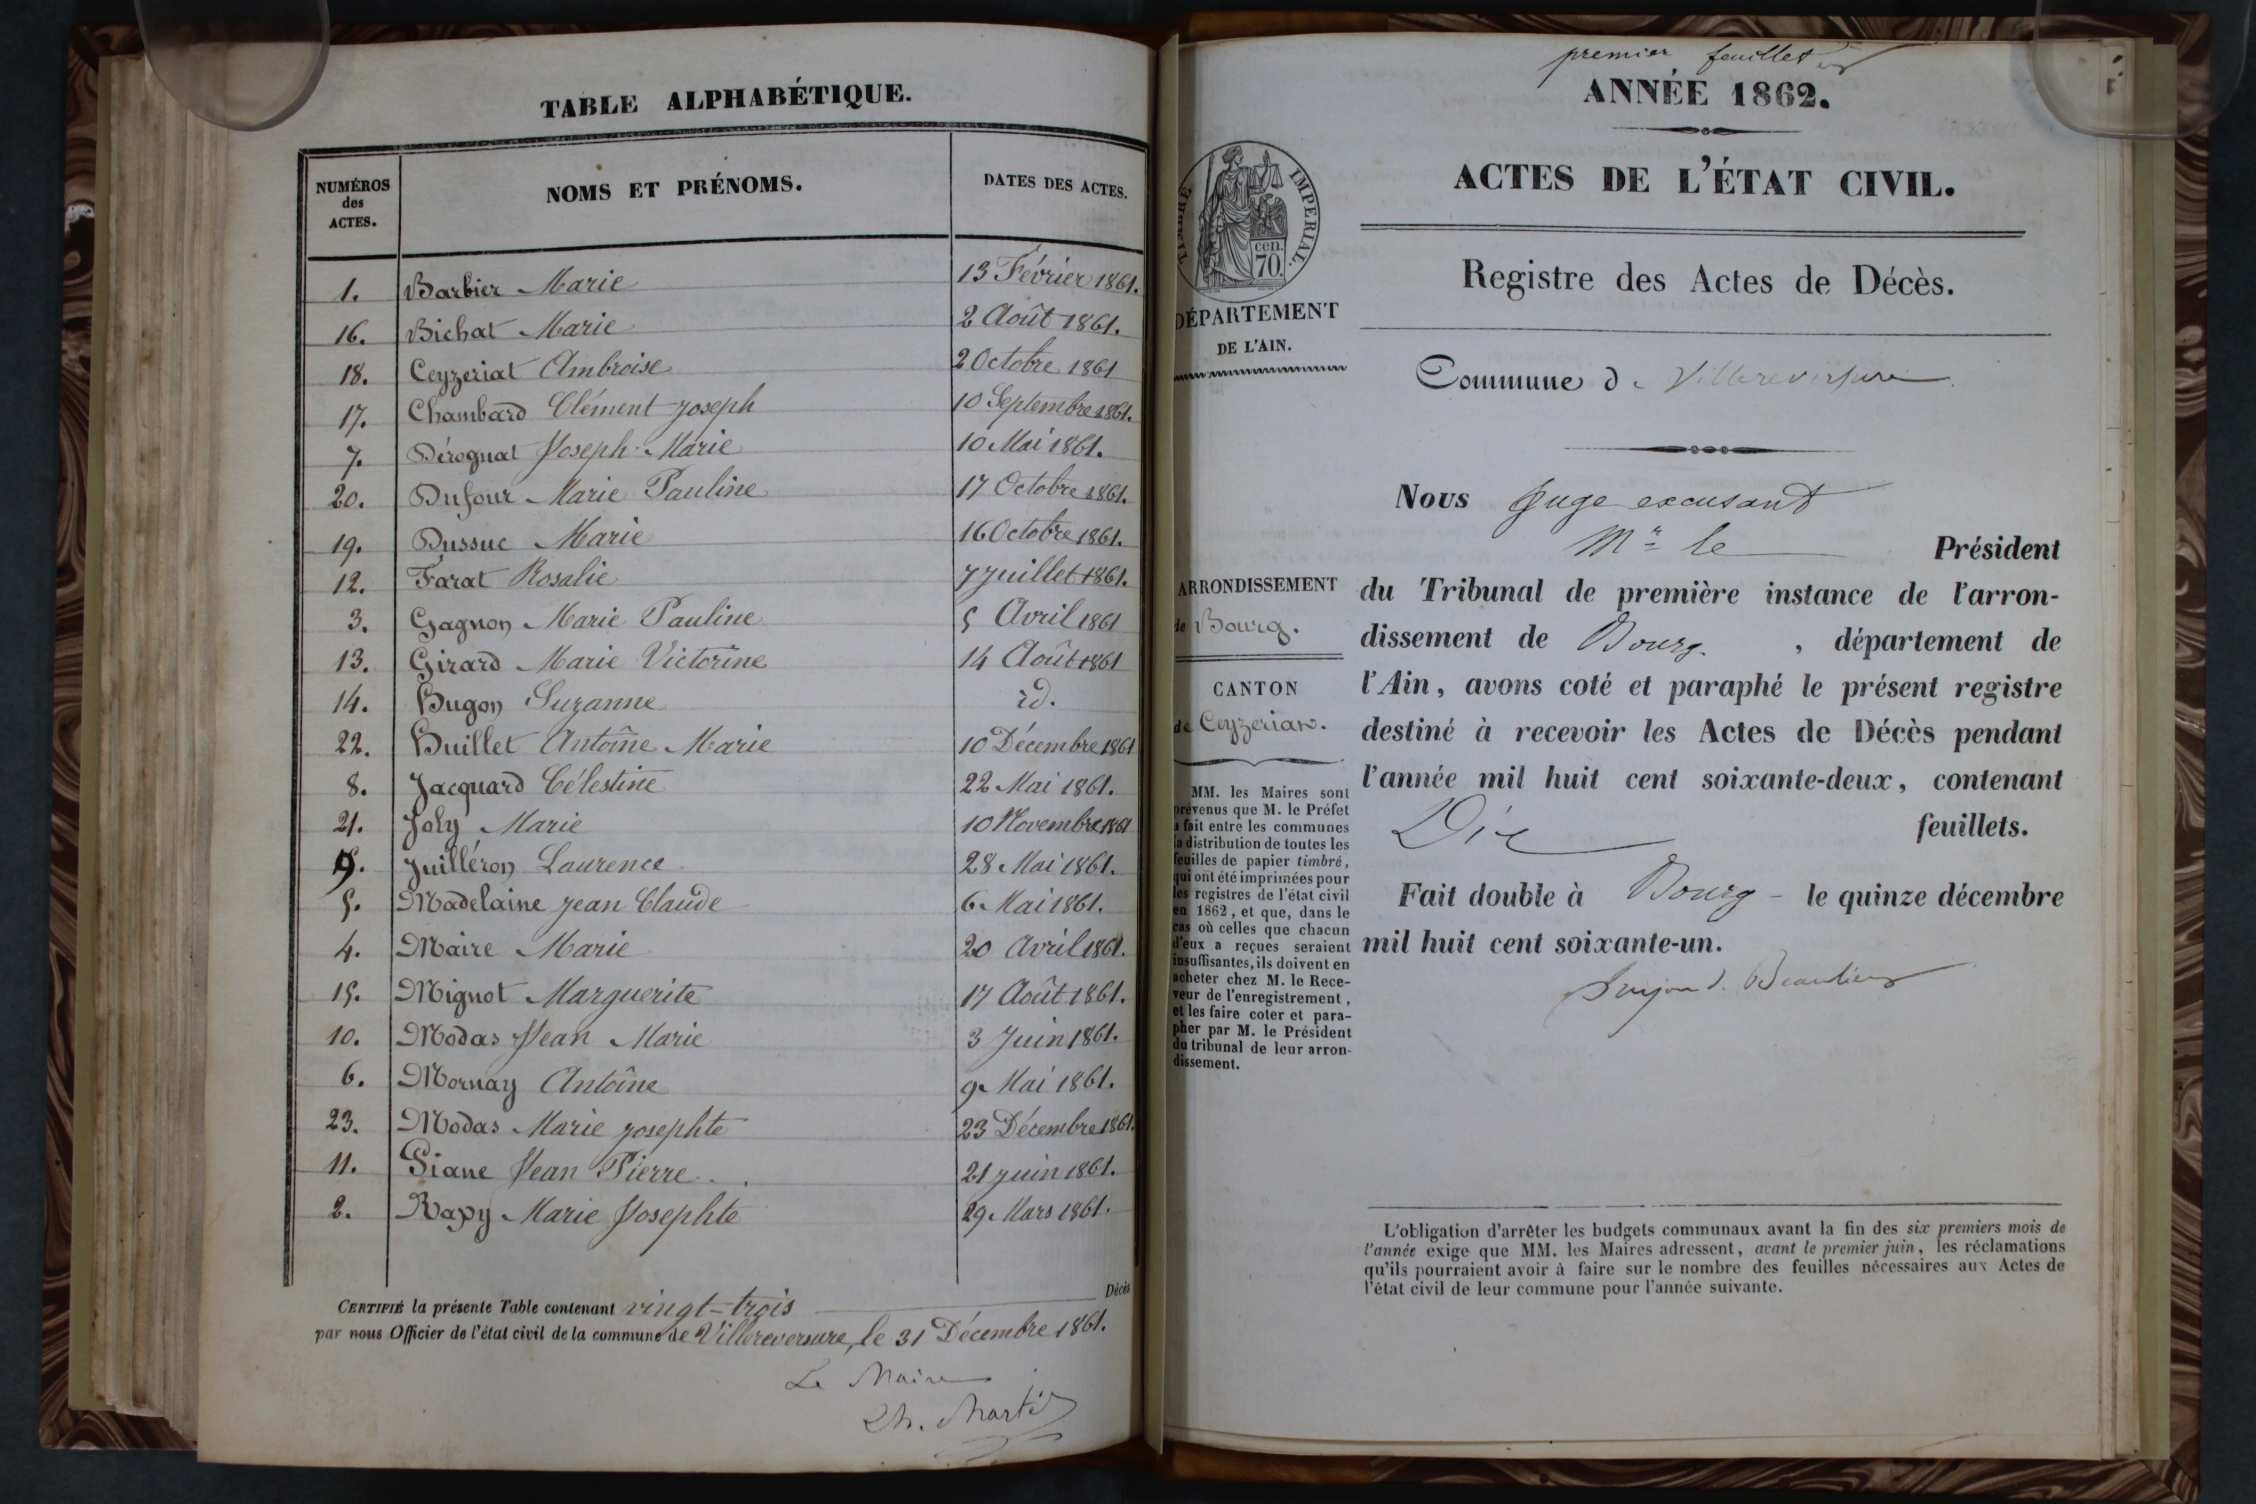 TABLE ALPHABÉTIQUE.
NUMÉROS
des
ACTES.
NOMS ET PRÉNOMS.
DATES DES ACTES.
1. Barbier Marie 13 Février 1861.
16. Bichat Marie 2 Août 1861.
18. Ceyzeriat Ambroise 2 Octobre 1861
17. Chambard Clément Joseph 10 Septembre 1861.
7. Dérognat Joseph Marie 10 Mai 1861.
20. Dufour Marie Pauline 17 Octobre 1861.
19. Dussuc Marie 16 Octobre 1861.
12. Farat Rosalie 7 Juillet 1861.
3. Gagnon Marie Pauline 5 Avril 1861
13. Girard Marie Victorine 14 Août 1861
14. Hugon Suzanne id.
22. Huillet Antoîne Marie 10 Décembre 1861
8. Jacquard Célestine 22 Mai 1861.
21. Joly Marie 10 Novembre 1861
9. Juilléron Laurence 28 Mai 1861.
5. Madelaine Jean Claude 6 Mai 1861.
4. Maire Marie 20 Avril 1861.
15. Mignot Marguerite 17 Août 1861.
10. Modas Jean Marie 3 Juin 1861.
6. Mornay Antoîne 9 Mai 1861.
23. Modas Marie Josephte 23 Décembre 1861.
11. Piane Jean Pierre 21 Juin 1861.
2. Rapy Marie Josephte 29 Mars 1861.
CERTIFIÉ la présente Table contenant vingt-trois Décès
par nous Officier de l'état civil de la commune de Villereversure, le 31 Décembre 1861.
Le Maire
premier feuillet
ANNÉE 1862.
ACTES DE L'ÉTAT CIVIL.
Registre des Actes de Décès.
TIMBRE IMPERIAL.
cen.
70.
DÉPARTEMENT
DE L'AIN.
Commune de Villereversure
Nous Juge excusant
Mr le Président
du Tribunal de première instance de l'arron-
dissement de Bourg, département de
l'Ain, avons coté et paraphé le présent registre
destiné à recevoir les Actes de Décès pendant
l'année mil huit cent soixante-deux, contenant
Dix feuillets.
Fait double à Bourg - le quinze décembre
mil huit cent soixante-un.
ARRONDISSEMENT
de Bourg.
CANTON
de Ceyzeriat.
MM. les Maires sont
prévenus que M. le Préfet
a fait entre les communes
la distribution de toutes les
feuilles de papier timbré,
qui ont été imprimées pour
les registres de l'état civil
en 1862, et que, dans le
cas où celles que chacun
d'eux a reçues seraient
insuffisantes, ils doivent en
acheter chez M. le Rece-
veur de l'enregistrement,
et les faire coter et para-
pher par M. le Président
du tribunal de leur arron-
dissement.
L'obligation d'arrêter les budgets communaux avant la fin des six premiers mois de
l'année exige que MM. les Maires adressent, avant le premier juin, les réclamations
qu'ils pourraient avoir à faire sur le nombre des feuilles nécessaires aux Actes de
l'état civil de leur commune pour l'année suivante.